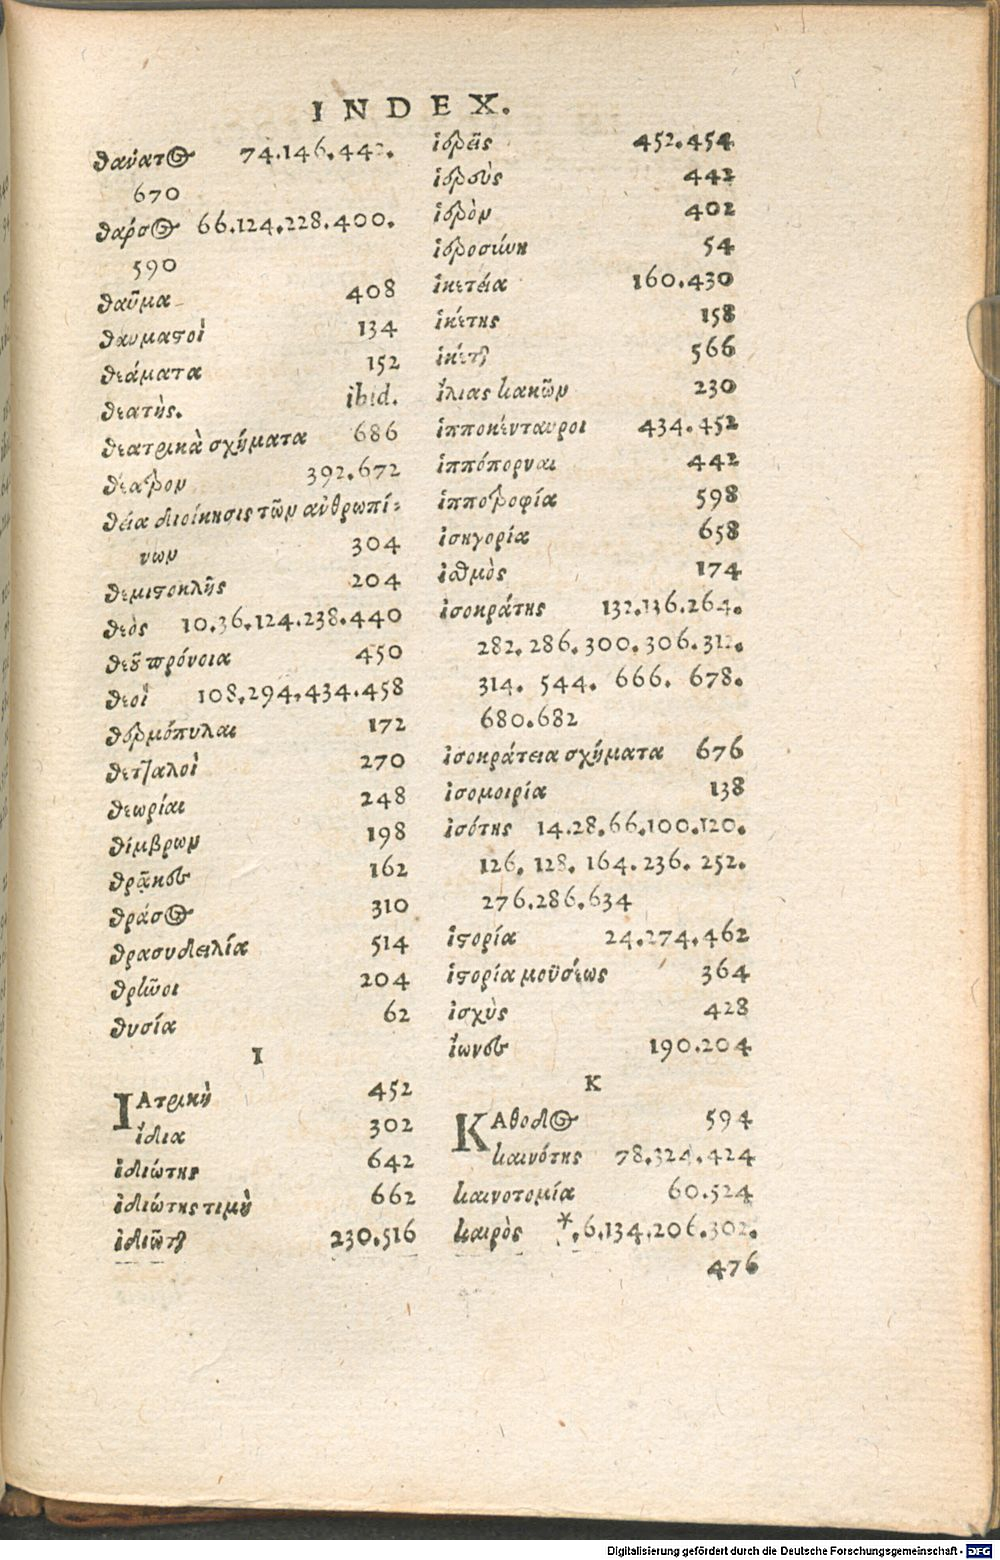 INDEX.
θάνατος 74.146.442.
670
θάρσος 66.124.228.400.
590
θαῦμα 408
θαυμαστοὶ 134
θεάματα 152
θεατὴς. ibid.
θεατρικὰ σχήματα 686
θέατρον 392.672
θεία διοίκησις τῶν ἀνθρωπί-
νων 304
θεμιστοκλῆς 204
θεὸς 10.36.124.238.440
θεοῦ πρόνοια 450
θεοὶ 108.294.434.458
θερμόπυλαι 172
θετταλοὶ 270
θεωρίαι 248
θίμβρων 198
θρᾷκες 162
θράσος 310
θρασυδειλία 514
θρίῶοι 204
θυσία 62
I
ΙΑτρικὴ 452
ἴδια 302
ἰδιώτης 642
ἰδιώτης τιμὴ 662
ἰδιῶται 230.516
ἱερεῖς 452.454
ἱεροὺς 442
ἱερὸν 402
ἱεροσύνη 54
ἱκετεία 160.430
ἱκέτης 158
ἱκέται 566
ἴλιας κακῶν 230
ἱπποκένταυροι 434.452
ἱππόπορναι 442
ἱπποτροφία 598
ἰσηγορία 658
ἰσθμὸς 174
ἰσοκράτης 132.136.264.
282.286.300.306.312.
314. 544. 666. 678.
680.682
ἰσοκράτεια σχήματα 676
ἰσομοιρία 138
ἰσότης 14.28.66.100.120.
126. 128. 164.236. 252.
276.286.634
ἱστορία 24.274.462
ἱστορία μοϋσέως 364
ἰσχὺς 428
ἴωνες 190.204
K
ΚΑθοδος 594
καινότης 78.324.424
καινοτομία 60.524
καιρὸς *.6.134.206.302.
476
Digitalisierung gefördert durch die Deutsche Forschungsgemeinschaft - DFG